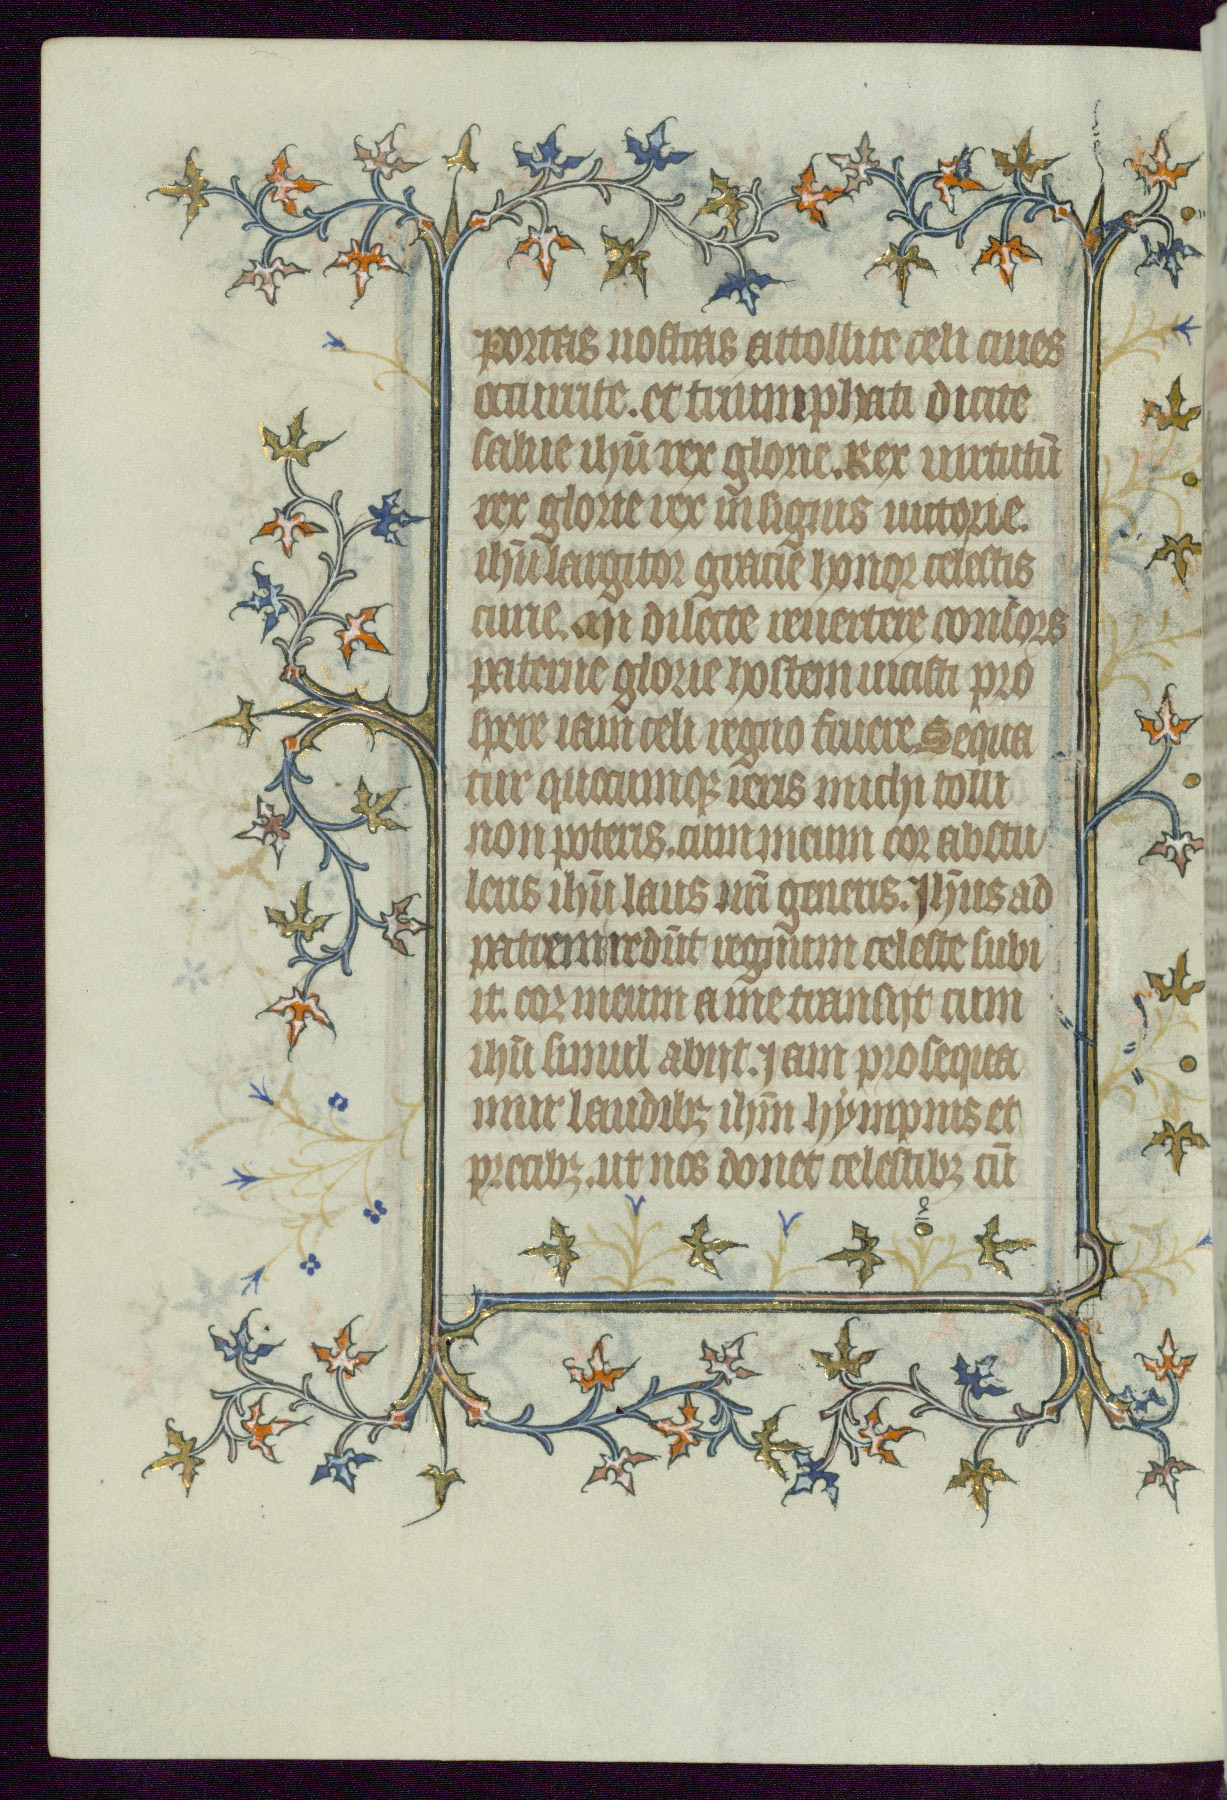 portas uostras attollite celi ciues
occurrite. et triumphati dicite
salue ihū rex glorie. Rex uirtutū
rex glorie rex insignis uictorie.
ihū largitor gracie honor celestis
curie. Mi dilecte reuertere consors
paterne glorie hostem uicisti pro
spere iam celi regno fruere. Sequa
tur quocumqꝫ ieris michi tolli
non poteris. cum meum cor abstu
leris ihū laus nrī generis. Jhūs ad
patrem redūt regnum celeste subi
it. cor meum a me transijt cum
ihū simul abijt. Jam prosequa
mur laudibꝫ ihm̄ hympnis et
precibꝫ. ut nos donet celestibꝫ cū